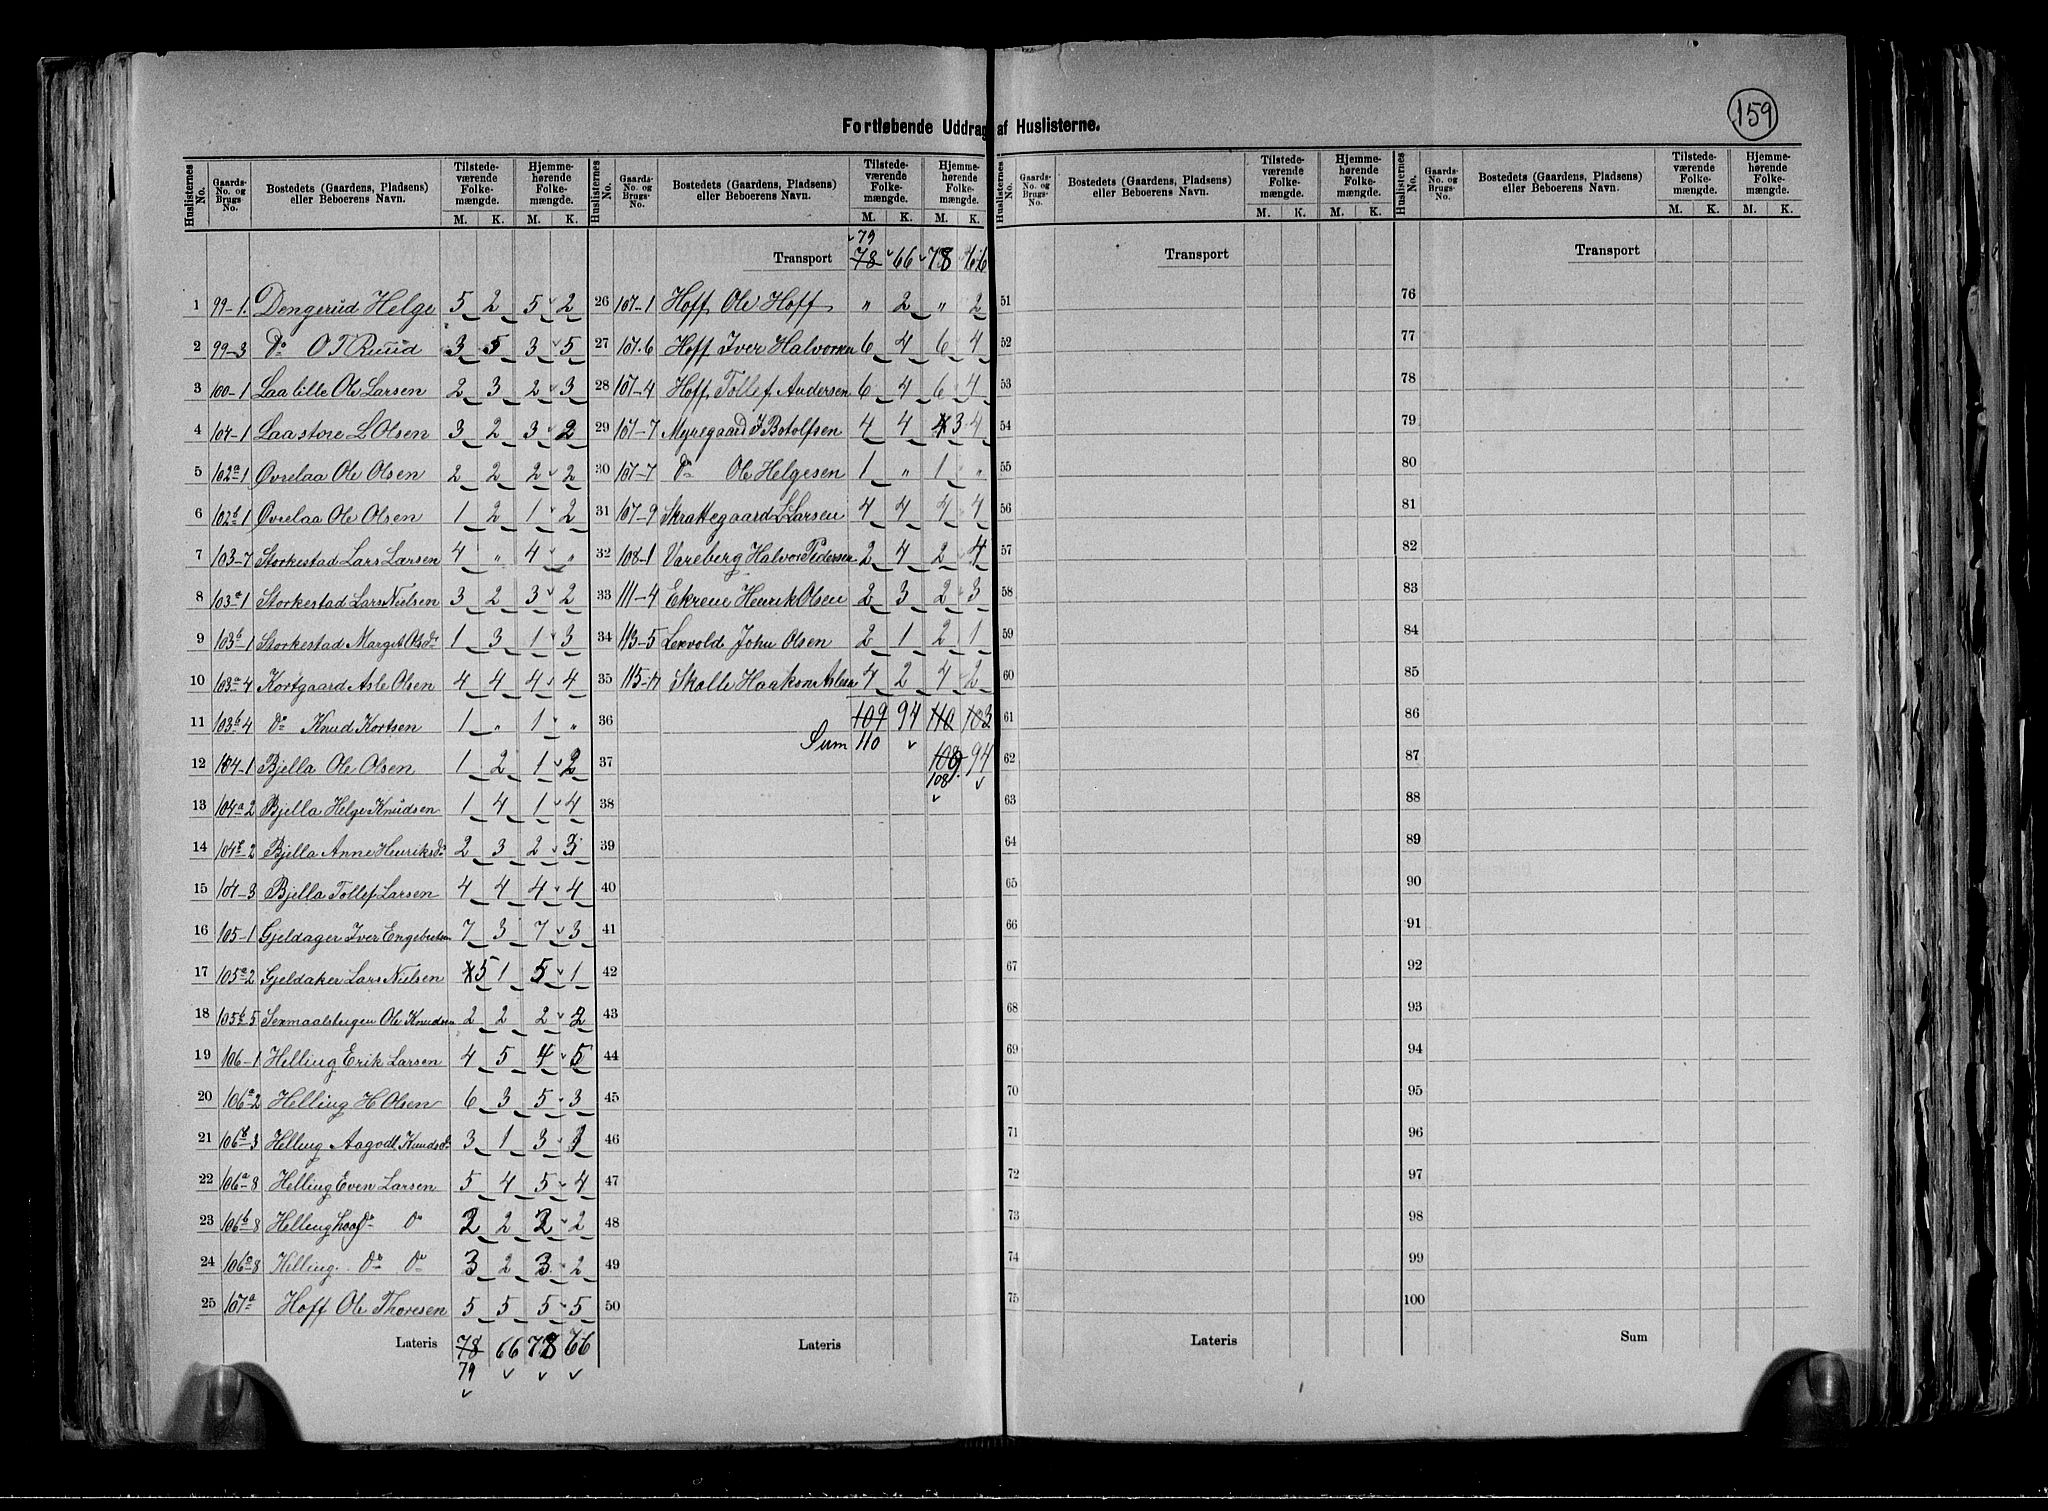 159
Fortløbende Uddrag af Huslisterne.
Huslisternes No. Gaards-No. og Brugs-No. Bostedets (Gaardens, Pladsens) eller Beboerens Navn. Tilstedeværende Folkemængde. M. K. Hjemmehørende Folkemængde. M. K.
1 99-1. Dengerud Helge 5 2 5 2
2 99-3 Do O T Ruud 3 5 3 5
3 100-1 Laa lille Ole Larsen 2 3 2 3
4 101-1 Laa store L Olsen 3 2 3 2
5 102a-1 Øvrelaa Ole Olsen 2 2 2 2
6 102b-1 Øvrelaa Ole Olsen 1 2 1 2
7 103-7 Storkestad Lars Larsen 4 " 4 "
8 103a-1 Storkestad Lars Nielsen 3 2 3 2
9 103b-1 Storkestad Margit Olsdr 1 3 1 3
10 103a-4 Kortgaard Asle Olsen 4 4 4 4
11 103b-4 Do Knud Kortsen 1 " 1 "
12 104-1 Bjella Ole Olsen 1 2 1 2
13 104a-2 Bjella Helge Knudsen 1 4 1 4
14 104b-2 Bjella Anne Henriksdr 2 3 2 3
15 104-3 Bjella Tollef Larsen 4 4 4 4
16 105-1 Gjeldager Iver Engebretsen 7 3 7 3
17 105a-2 Gjeldaker Lars Nielsen 5 1 5 1
18 105b-5 Senmaalstuigen Ole Knudsen 2 2 2 2
19 106-1 Helling Erik Larsen 4 5 4 5
20 106a-2 Helling H Olsen 6 3 5 3
21 106b-3 Helling Aagodt Knudsdr 3 1 3 1
22 106a-8 Helling Even Larsen 5 4 5 4
23 106b-8 Hellinghoo Do Do 2 2 2 2
24 106a-8 Helling. Do Do 3 2 3 2
25 107a Hoff Ole Thoresen 5 5 5 5
Lateris 78 66 78 66
79
Huslisternes No. Gaards-No. og Brugs-No. Bostedets (Gaardens, Pladsens) eller Beboerens Navn. Tilstedeværende Folkemængde. M. K. Hjemmehørende Folkemængde. M. K.
79
Transport 78 66 78 66
26 107-1 Hoff Ole Hoff " 2 " 2
27 107-6 Hoff Iver Halvorsen 6 4 6 4
28 107-4 Hoff Tollef Andersen 6 4 6 4
29 107-7 Myregaard I Botolfsen 4 4 3 4
30 107-7 Do Ole Helgesen 1 " 1 "
31 107-9 Skrattegaard L Larsen 4 4 4 4
32 108-1 Vareberg Halvor Pedersen 2 4 2 4
33 111-4 Ekrene Henrik Olsen 2 3 2 3
34 113-5 Lexvold John Olsen 2 1 2 1
35 115-17 Skolle Haakon Aslesen 4 2 4 2
36 109 94 110 103
Sum 110
37 109 94
108
38
39
40
41
42
43
44
45
46
47
48
49
50
Lateris
Huslisternes No. Gaards-No. og Brugs-No. Bostedets (Gaardens, Pladsens) eller Beboerens Navn. Tilstedeværende Folkemængde. M. K. Hjemmehørende Folkemængde. M. K.
Transport
51
52
53
54
55
56
57
58
59
60
61
62
63
64
65
66
67
68
69
70
71
72
73
74
75
Lateris
Huslisternes No. Gaards-No. og Brugs-No. Bostedets (Gaardens, Pladsens) eller Beboerens Navn. Tilstedeværende Folkemængde. M. K. Hjemmehørende Folkemængde. M. K.
Transport
76
77
78
79
80
81
82
83
84
85
86
87
88
89
90
91
92
93
94
95
96
97
98
99
100
Sum